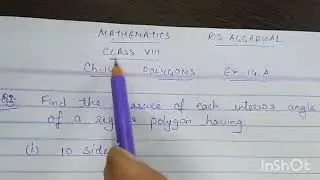 MATHEMATICS R.S. AGGARWAL
CLASS VIII
Ch-14 POLYGONS Ex-14.A
Q2 Find the measure of each interior angle
of a regular polygon having
(i) 10 sides
InShOt